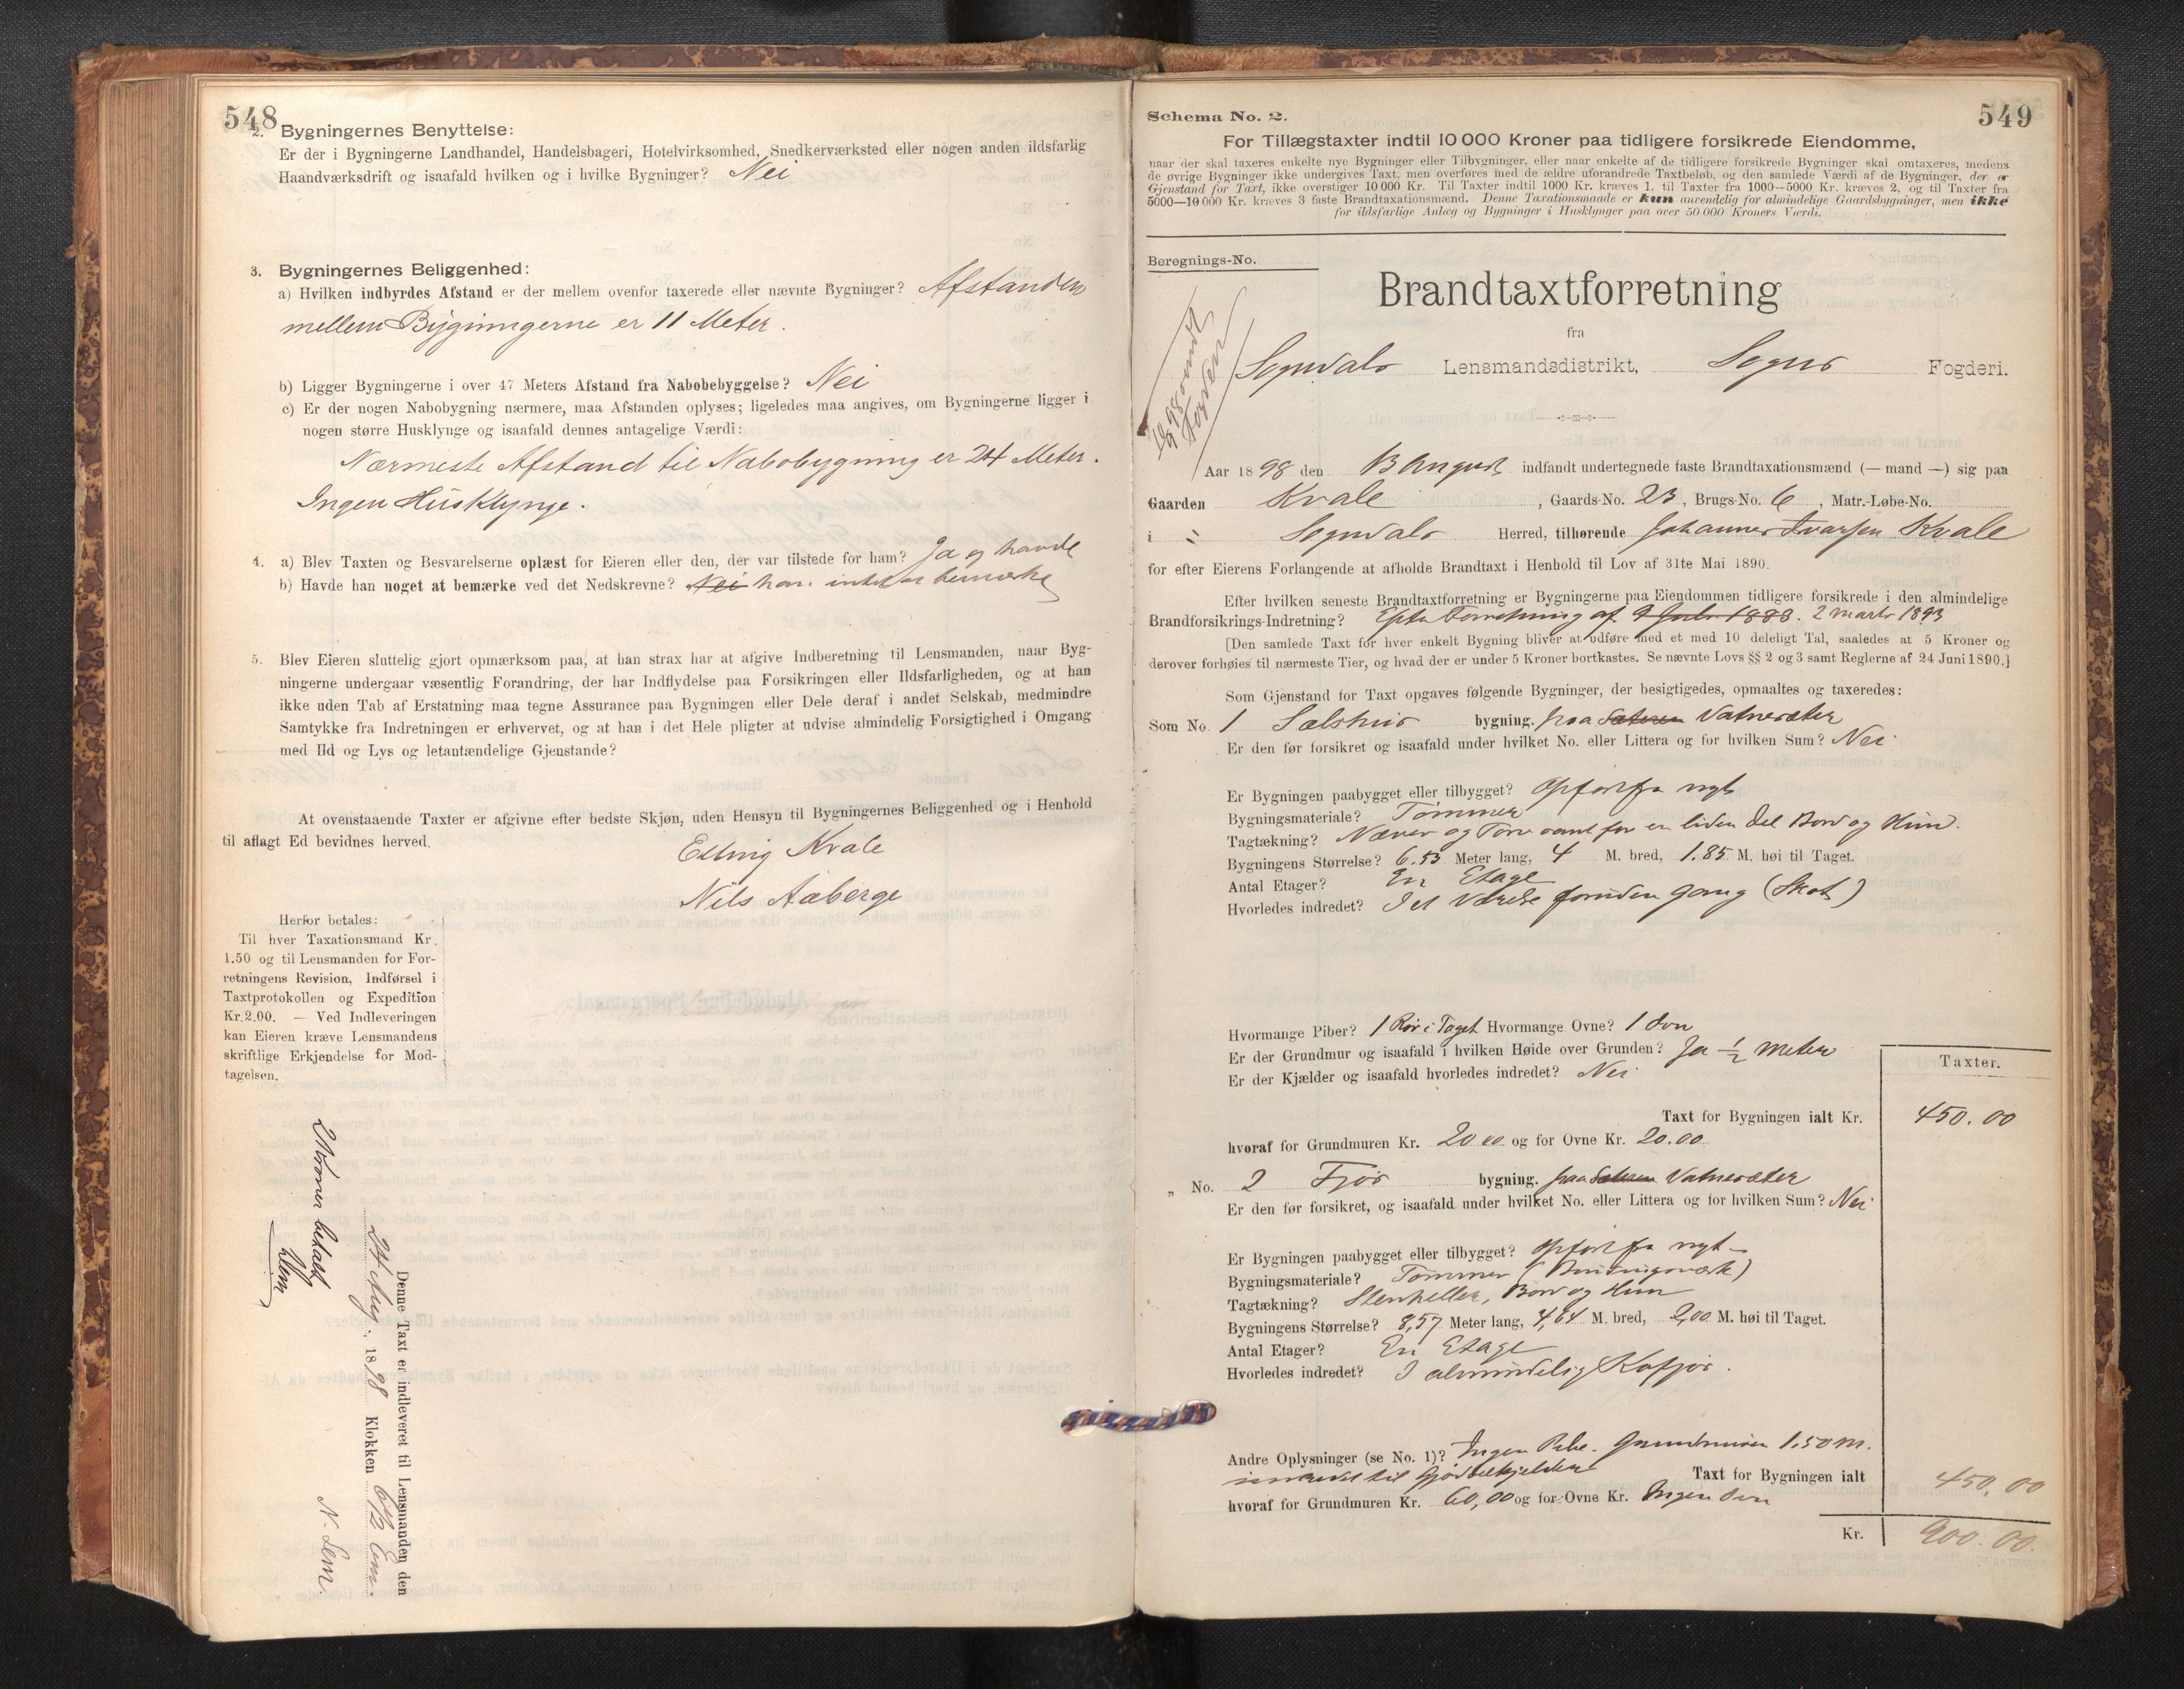 548
2. Bygningernes Benyttelse:
Er der i Bygningerne Landhandel, Handelsbageri, Hotelvirksomhed, Snedkerværksted eller nogen anden ildsfarlig
Haandværksdrift og isaafald hvilken og i hvilke Bygninger? Nei
3. Bygningernes Beliggenhed:
a) Hvilken indbyrdes Afstand er der mellem ovenfor taxerede eller nævnte Bygninger? Afstanden
mellem Bygningerne er 11 Meter.
b) Ligger Bygningerne i over 47 Meters Afstand fra Nabobebyggelse? Nei
c) Er der nogen Nabobygning nærmere, maa Afstanden oplyses; ligeledes maa angives, om Bygningerne ligger i
nogen større Husklynge og isaafald dennes antagelige Værdi:
Nærmeste Afstand til Nabobygning er 24 Meter.
Ingen Husklynge.
4. a) Blev Taxten og Besvarelserne oplæst for Eieren eller den, der var tilstede for ham? Ja og havde
b) Havde han noget at bemærke ved det Nedskrevne? Nei han intet at bemærke
5. Blev Eieren sluttelig gjort opmærksom paa, at han strax har at afgive Indberetning til Lensmanden, naar Byg-
ningerne undergaar væsentlig Forandring, der har Indflydelse paa Forsikringen eller Ildsfarligheden, og at han
ikke uden Tab af Erstatning maa tegne Assurance paa Bygningen eller Dele deraf i andet Selskab, medmindre
Samtykke fra Indretningen er erhvervet, og at han i det Hele pligter at udvise almindelig Forsigtighed i Omgang
med Ild og Lys og letantændelige Gjenstande?
At ovenstaaende Taxter er afgivne efter bedste Skjøn, uden Hensyn til Bygningernes Beliggenhed og i Henhold
til aflagt Ed bevidnes herved.
Elling Kvale
Nils Aaberge
Herfor betales:
Til hver Taxationsmand Kr.
1.50 og til Lensmanden for For-
retningens Revision, Indførsel i
Taxtprotokollen og Expedition
Kr. 2.00. — Ved Indleveringen
kan Eieren kræve Lensmandens
skriftlige Erkjendelse for Mod-
tagelsen.
Denne Taxt er indleveret til Lensmanden den
24 Aug. 1898 Klokken 6 1/2 Em.
N. Lem.
betalt
Lem
549
Schema No. 2.
For Tillægstaxter indtil 10 000 Kroner paa tidligere forsikrede Eiendomme,
naar der skal taxeres enkelte nye Bygninger eller Tilbygninger, eller naar enkelte af de tidligere forsikrede Bygninger skal omtaxeres, medens
de øvrige Bygninger ikke undergives Taxt, men overføres med de ældre uforandrede Taxtbeløb, og den samlede Værdi af de Bygninger, der er
Gjenstand for Taxt, ikke overstiger 10 000 Kr. Til Taxter indtil 1000 Kr. kræves 1, til Taxter fra 1000—5000 Kr. kræves 2, og til Taxter fra
5000—10 000 Kr. kræves 3 faste Brandtaxationsmænd. Denne Taxationsmaade er kun anvendelig for almindelige Gaardsbygninger, men ikke
for ildsfarlige Anlæg og Bygninger i Husklynger paa over 50 000 Kroners Værdi.
Beregnings-No.
Brandtaxtforretning
fra
Sogndals Lensmandsdistrikt, Sogns Fogderi.
Aar 1898 den 13 August indfandt undertegnede faste Brandtaxationsmænd (— mand —) sig paa
Gaarden Kvale, Gaards-No. 23, Brugs-No. 6, Matr.-Løbe-No.
i " Sogndals Herred, tilhørende Johannes Ivarsen Kvale
for efter Eierens Forlangende at afholde Brandtaxt i Henhold til Lov af 31te Mai 1890.
Efter hvilken seneste Brandtaxtforretning er Bygningerne paa Eiendommen tidligere forsikrede i den almindelige
Brandforsikrings-Indretning? Efter Forretning af 9 Juli 1888. 2 Marts 1893
[Den samlede Taxt for hver enkelt Bygning bliver at udføre med et med 10 deleligt Tal, saaledes at 5 Kroner og
derover forhøies til nærmeste Tier, og hvad der er under 5 Kroner bortkastes. Se nævnte Lovs §§ 2 og 3 samt Reglerne af 24 Juni 1890.]
Som Gjenstand for Taxt opgaves følgende Bygninger, der besigtigedes, opmaaltes og taxeredes:
Som No. 1 Sælshus bygning. paa Sæteren Vatnesæter
Er den før forsikret og isaafald under hvilket No. eller Littera og for hvilken Sum? Nei
Er Bygningen paabygget eller tilbygget? Opført fra nyt
Bygningsmateriale? Tømmer
Tagtækning? Næver og Torv samt for en liden Del Bord og Hun.
Bygningens Størrelse? 6.53 Meter lang, 4 M. bred, 1.85 M. høi til Taget.
Antal Etager? En Etage
Hvorledes indredet? I et Værelse foruden Gang (Skot)
Hvormange Piber? 1 Rør i Taget Hvormange Ovne? 1 Ovn
Er der Grundmur og isaafald i hvilken Høide over Grunden? Ja 1/2 Meter
Er der Kjælder og isaafald hvorledes indredet? Nei
Taxter.
Taxt for Bygningen ialt Kr. 450.00
hvoraf for Grundmuren Kr. 20 00 og for Ovne Kr. 20.00
„ No. 2 Fjøs bygning. paa Sæteren Vatnesæter
Er den før forsikret, og isaafald under hvilket No. eller Littera og for hvilken Sum? Nei
Er Bygningen paabygget eller tilbygget? Opført fra nyt
Bygningsmateriale? Tømmer (Bindingsværk)
Tagtækning? Stenheller, Bord og Hun
Bygningens Størrelse? 8,57 Meter lang, 4,64 M. bred, 2,00 M. høi til Taget.
Antal Etager? En Etage
Hvorledes indredet? I almindelig Kofjøs.
Andre Oplysninger (se No. 1)? Ingen Pibe. Grundmuren 1.50 M.
indredet til Gjødselkjelder
Taxt for Bygningen ialt 450,00
hvoraf for Grundmuren Kr. 60,00 og for Ovne Kr. Ingen Ovn
Kr. 900.00.